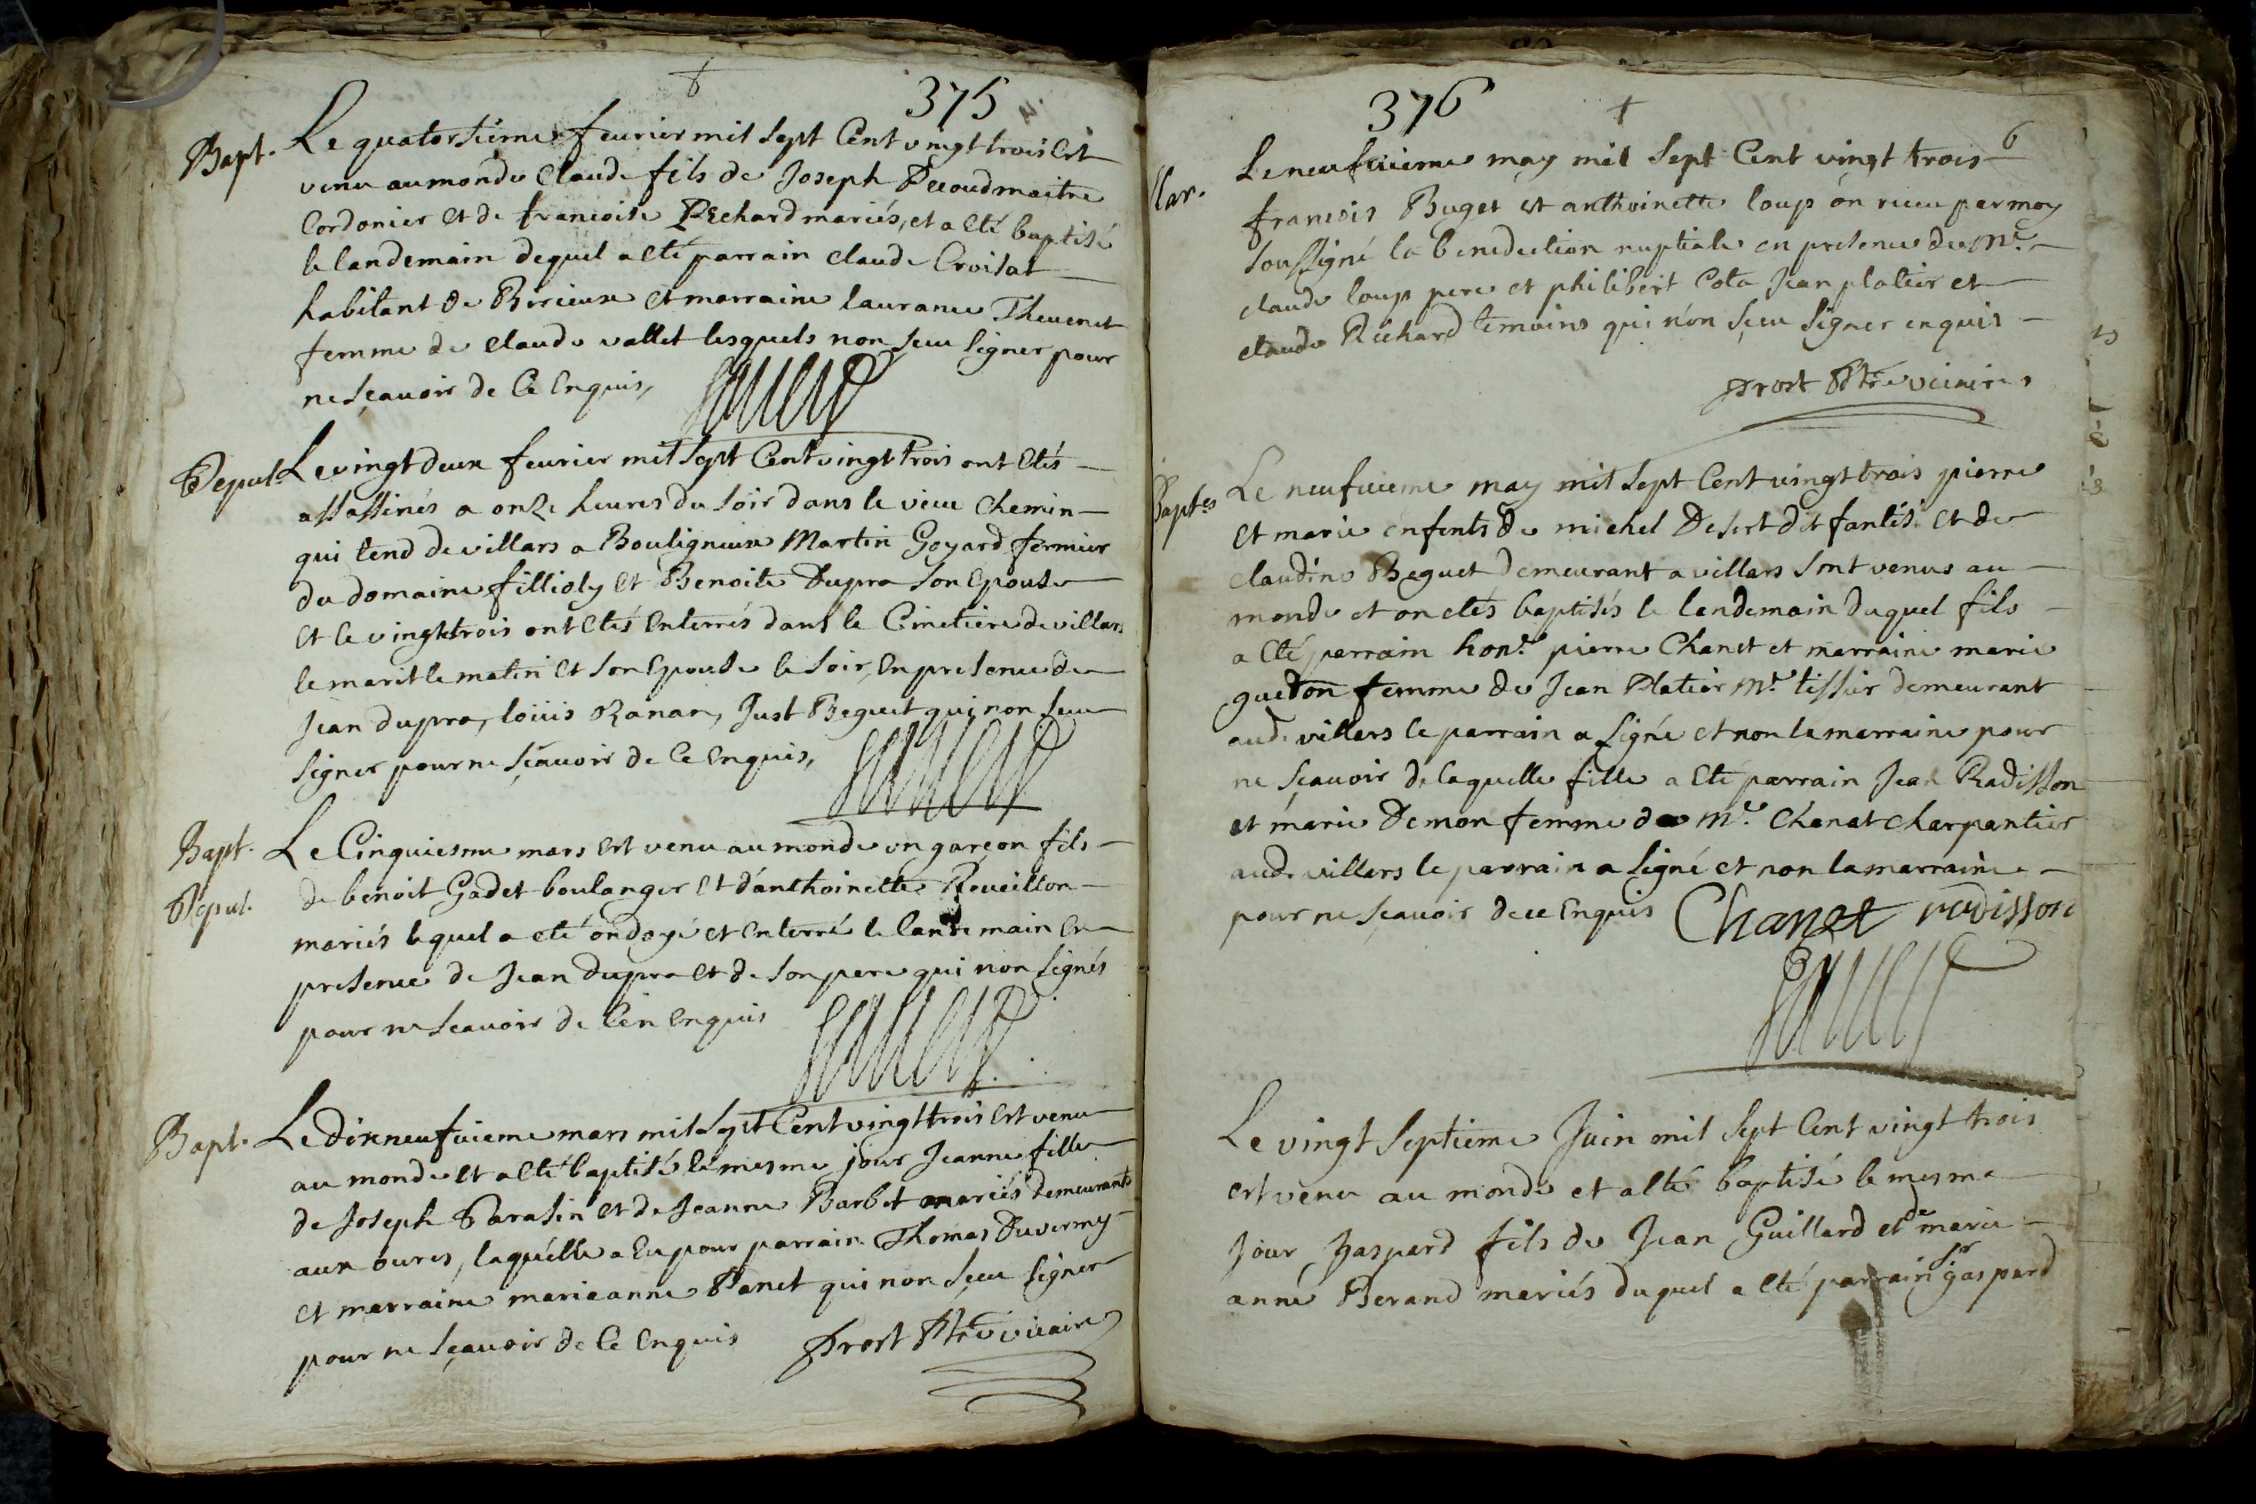 375
Bapt. Le quatorsieme feurier mil sept Cent vingt trois est
venu au monde Claude fils de Joseph Decoud maitre
Cordonier et de francoise Pechard mariés, et a eté baptisé
le landemain dequel a eté parrain claude Croisat
habitant de Birieux et marraine laurance Theuenet
femme de claude vallet lesquels non sceu signer pour
ne sçauoir de Ce Enquis,
Sepul. Le vingt deux feurier mil sept Cent vingt trois ont Etés
assassinés a onze heures du soir dans le vieux chemin
qui tend de villars a Bouligneux Martin Goyard fermier
du domaine fillioly et Benoite Dupra son Epouse
et le vingt trois ont Etés Enterrés dans le Cimetiere de villars
le marit le matin et son Epouse le soir, En presence de
Jean dupra, loüis Ranan, Just Beguet qui non sceu
signer pour ne sçauoir de Ce Enquis,
Bapt. Le Cinquiesme mars est venu au monde vn garçon fils
Sepul. de benoit Gadet boulanger et d'anthoinette Reveillon
mariés lequel a eté ondoyé et Enterré le landemain En
presence de Jean dupra et de son pere qui non signés
pour ne sçauoir de Cen Enquis
Bapt. Le dixneufuieme mars mil sept Cent vingt trois est venu
au monde et a eté baptisée le mesme jour Jeanne fille
de Joseph Parasin et de Jeanne Barbet mariés demeurants
aux oures, laquelle a Eu pour parrain Thomas Duvermy
et marraine marieanne Panet qui non sçeu signer
pour ne sçauoir de Ce Enquis prost Ptre vicaire
376
6
Mar. Le neufuieme may mil sept Cent vingt trois
francois Buget et anthoinette loup ön receu par moy
soussigné la benediction nuptiale en presence de Me
claude loup pere et philibert Cota Jean platier et
claude Richard temoins qui n'on sçeu signer enquis
prost Ptre vicaire
Baptes Le neufuieme may mil sept Cent vingt trois pierre
et marie enfents de michel Desert dit fantés et de
claudine Beguet demeurant a villars sont venus au
monde et on etés baptisés le lendemain duquel fils
a eté parrain hon. pierre Chanet et marraine marie
guedon femme de Jean Platier Me tissier demeurant
aud. villars le parrain a signé et non la marraine pour
ne sçauoir de laquelle fille a eté parrain Jean Radisson
et marie Demon femme de Me Chanat charpantier
aud. villars le parrain a signé et non la marraine
pour ne sçauoir de ce Enquis Chanet radisson
Le vingt septieme Juin mil sept Cent vingt trois
est venu au monde et a eté baptisé le mesme
jour gaspard fils de Jean Guillard et de marie
anne Berand mariés duquel a eté parrain sr gaspard